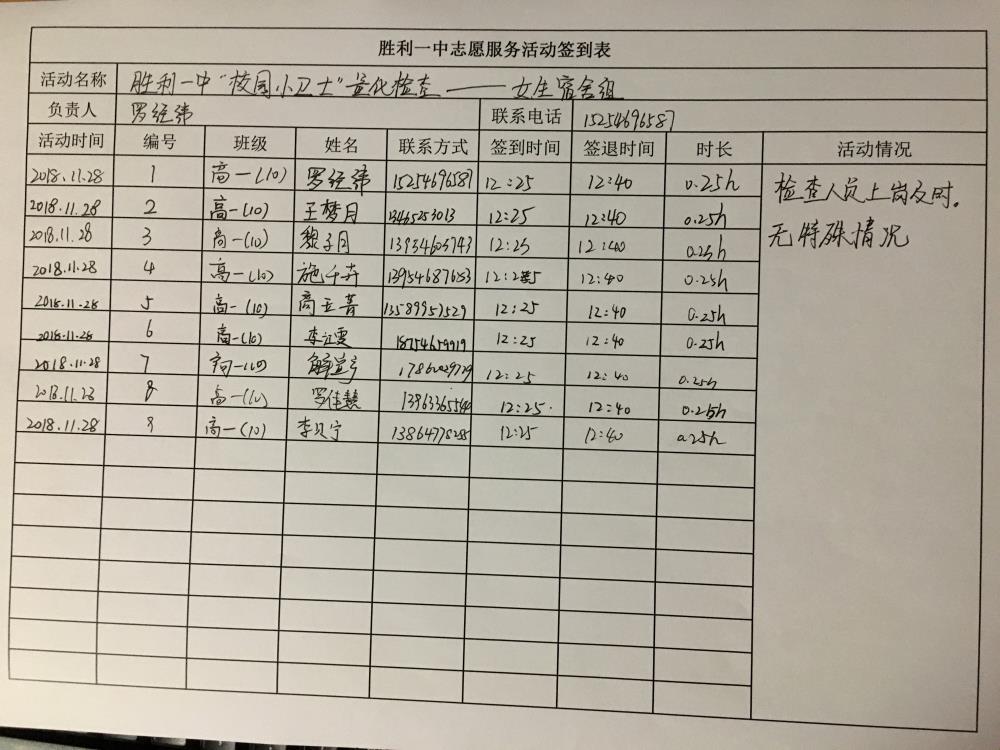 胜利一中志愿服务活动签到表
活动名称 胜利一中"校园小卫士"量化检查——女生宿舍组
负责人 罗经纬 联系电话 15254696587
活动时间 编号 班级 姓名 联系方式 签到时间 签退时间 时长 活动情况
2018.11.28 1 高一(10) 罗经纬 15254696587 12:25 12:40 0.25h 检查人员上岗及时.
2018.11.28 2 高一(10) 王梦月 13465253013 12:25 12:40 0.25h 无特殊情况
2018.11.28 3 高一(10) 黎子月 13954605743 12:25 12:40 0.25h
2018.11.28 4 高一(10) 施千卉 13954687653 12:25 12:40 0.25h
2018.11.28 5 高一(10) 12:25 12:40 0.25h
2018.11.28 6 高一(10) 18754659919 12:25 12:40 0.25h
2018.11.28 7 高一(10) 12:25 12:40 0.25h
2018.11.28 8 高一(10) 罗佳慧 12:25 12:40 0.25h
2018.11.28 9 高一(10) 李贝宁 12:25 12:40 0.25h